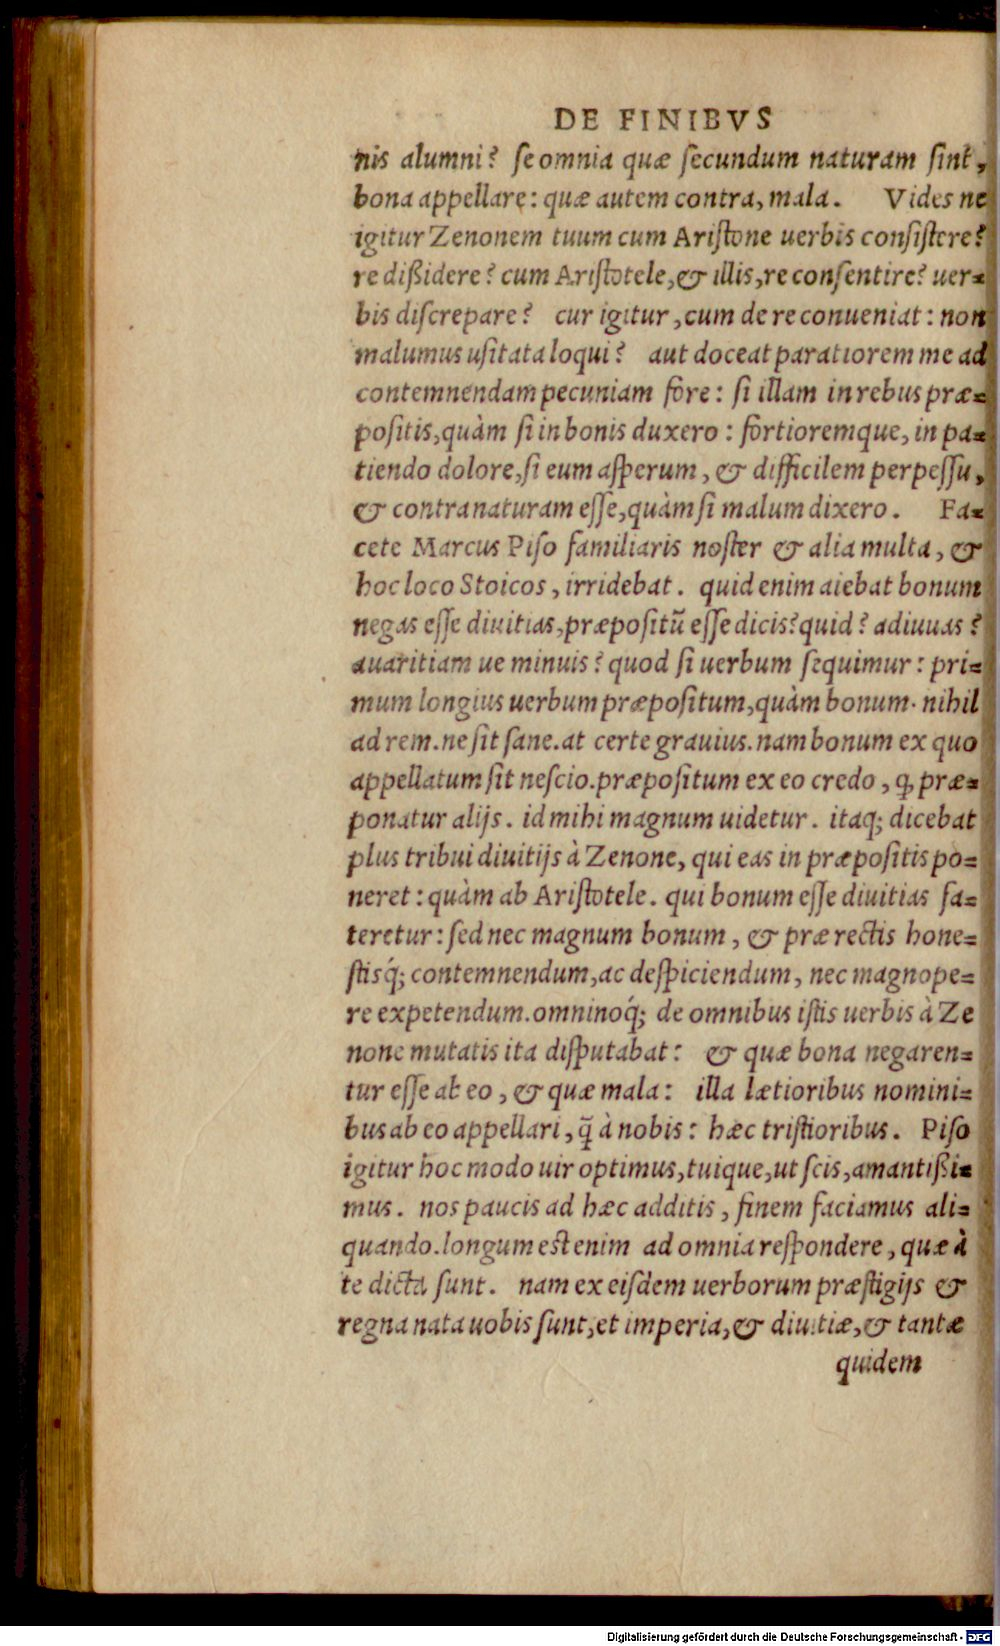 DE FINIBVS
nis alumni? ſe omnia quæ ſecundum naturam ſint,
bona appellare: quæ autem contra, mala. Vides ne
igitur Zenonem tuum cum Ariſtone uerbis conſiſtere?
re dißidere? cum Ariſtotele, & illis, re conſentire? uer=
bis diſcrepare? cur igitur, cum de re conueniat: non
malumus uſitata loqui? aut doceat paratiorem me ad
contemnendam pecuniam fore: ſi illam in rebus præ=
poſitis, quàm ſi in bonis duxero: fortioremque, in pa=
tiendo dolore, ſi eum aſperum, & difficilem perpeſſu,
& contra naturam eſſe, quàm ſi malum dixero. Fa=
cete Marcus Piſo familiaris noſter & alia multa, &
hoc loco Stoicos, irridebat. quid enim aiebat bonum
negas eſſe diuitias, præpoſitũ eſſe dicis? quid? adiuuas?
auaritiam ue minuis? quod ſi uerbum ſequimur: pri=
mum longius uerbum præpoſitum, quàm bonum. nihil
ad rem. ne ſit ſane. at certe grauius. nam bonum ex quo
appellatum ſit neſcio. præpoſitum ex eo credo, ꝙ præ=
ponatur alijs. id mihi magnum uidetur. itaq; dicebat
plus tribui diuitijs à Zenone, qui eas in præpoſitis po=
neret: quàm ab Ariſtotele. qui bonum eſſe diuitias fa=
teretur: ſed nec magnum bonum, & præ rectis hone=
ſtisq́; contemnendum, ac deſpiciendum, nec magnope=
re expetendum. omninoq́; de omnibus iſtis uerbis à Ze
none mutatis ita diſputabat: & quæ bona negaren=
tur eſſe ab eo, & quæ mala: illa lætioribus nomini=
bus ab eo appellari, q̃ à nobis: hæc triſtioribus. Piſo
igitur hoc modo uir optimus, tuique, ut ſcis, amantißi=
mus. nos paucis ad hæc additis, finem faciamus ali=
quando. longum est enim ad omnia reſpondere, quæ à
te dicta ſunt. nam ex eiſdem uerborum præſtigijs &
regna nata uobis ſunt, et imperia, & diuitiæ, & tantæ
quidem
Digitalisierung gefördert durch die Deutsche Forschungsgemeinschaft - DFG